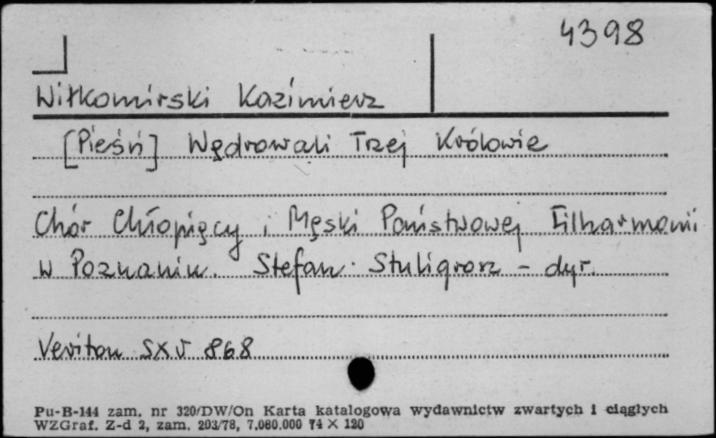 4398
Wiłkomirski Kazimierz
[Pieśń] Wędrowali Trzej Królowie
Chór Chłopięcy i Męski Państwowej Filharmonii
w Poznaniu. Stefan Stuligrosz - dyr.
Veriton SXV 868
Pu-B-144 zam. nr 320/DW/On Karta katalogowa wydawnictw zwartych i ciągłych
WZGraf. Z-d 2, zam. 203/78, 7.000.000 74 × 120